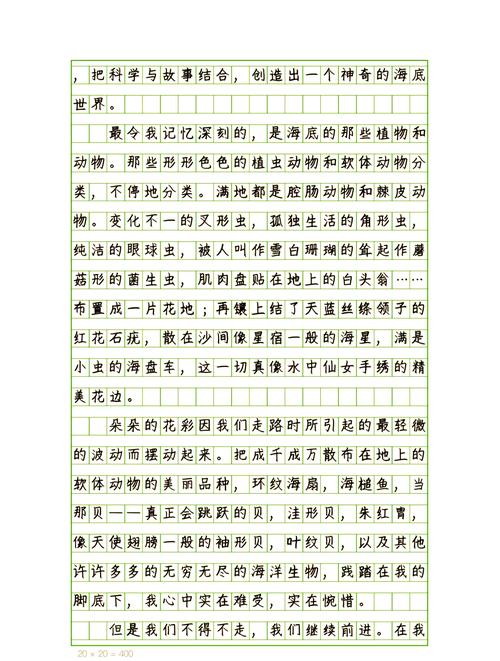 ，把科学与故事结合，创造出一个神奇的海底
世界。
最令我记忆深刻的，是海底的那些植物和
动物。那些形形色色的植虫动物和软体动物分
类，不停地分类。满地都是腔肠动物和棘皮动
物。变化不一的叉形虫，孤独生活的角形虫，
纯洁的眼球虫，被人叫作雪白珊瑚的耸起作蘑
菇形的菌生虫，肌肉盘贴在地上的白头翁……
布置成一片花地；再镶上结了天蓝丝绦领子的
红花石疣，散在沙间像星宿一般的海星，满是
小虫的海盘车，这一切真像水中仙女手绣的精
美花边。
朵朵的花彩因我们走路时所引起的最轻微
的波动而摆动起来。把成千成万散布在地上的
软体动物的美丽品种，环纹海扇，海槌鱼，当
那贝——真正会跳跃的贝，洼形贝，朱红胄，
像天使翅膀一般的袖形贝，叶纹贝，以及其他
许许多多的无穷无尽的海洋生物，践踏在我的
脚底下，我心中实在难受，实在惋惜。
但是我们不得不走，我们继续前进。在我
20 × 20 = 400